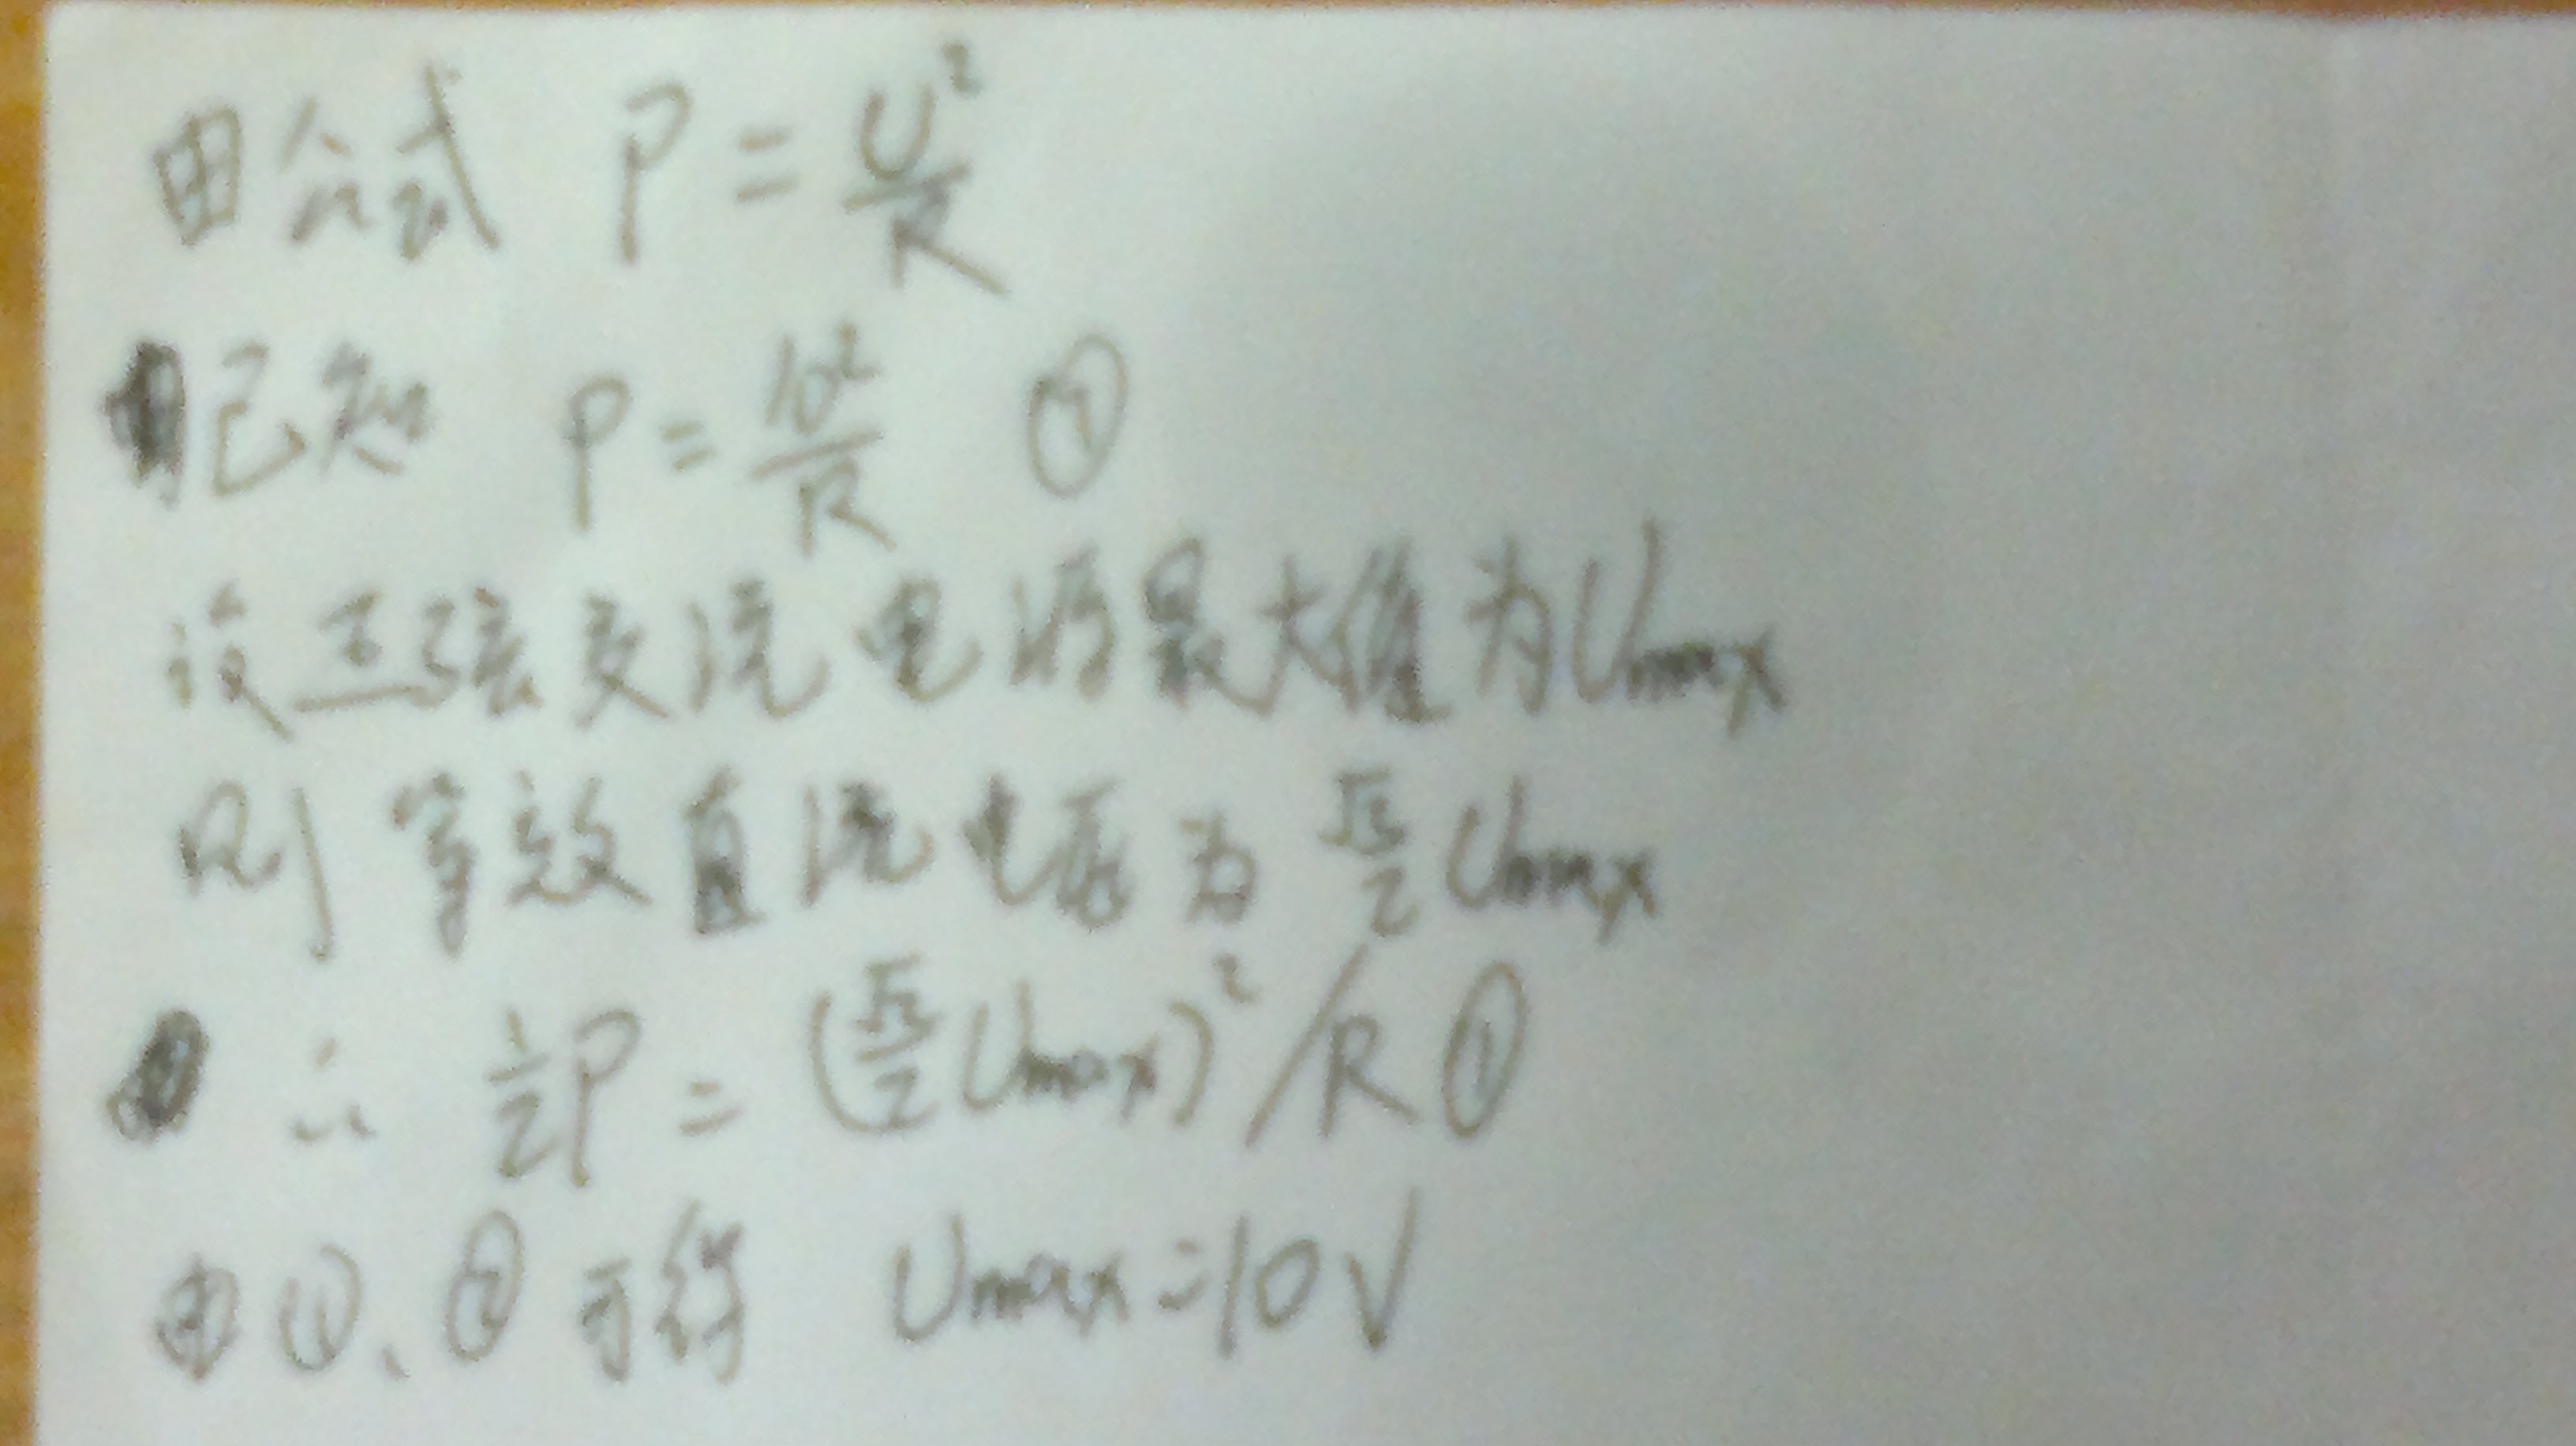 由公式 P = U²/R
已知 P = 10²/R ①
设正弦交流电的最大值为Umax
则等效直流电压为 √2/2 Umax
∴ 1/2 P = (√2/2 Umax)²/R ①
由①、②可得 Umax = 10V